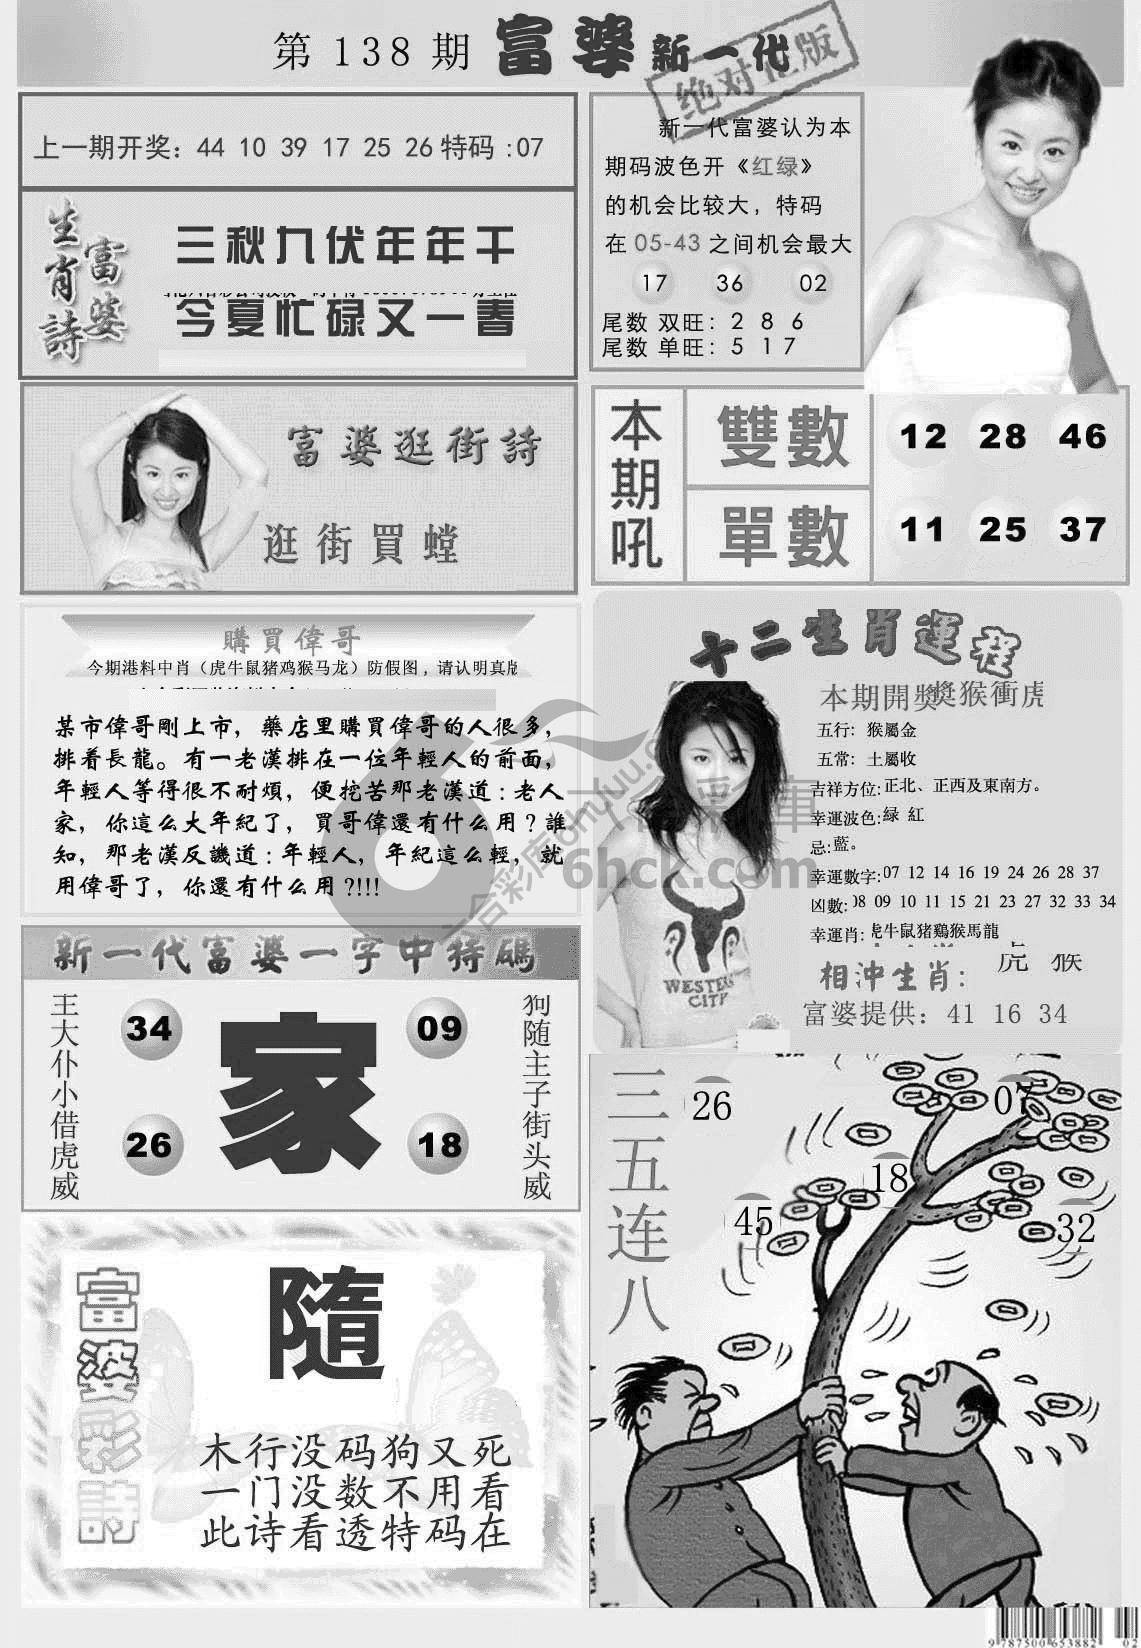 第 138 期 富婆 新一代
绝对正版
上一期开奖：44 10 39 17 25 26 特码 :07
生肖詩
富婆
三秋九伏年年干
今夏忙碌又一春
新一代富婆认为本
期码波色开《红绿》
的机会比较大，特码
在 05-43 之间机会最大
17 36 02
尾数 双旺：2 8 6
尾数 单旺：5 1 7
富婆逛街詩
逛街買螳
本期吼
雙數
12 28 46
單數
11 25 37
購買偉哥
今期港料中肖（虎牛鼠猪鸡猴马龙）防假图，请认明真版
某市偉哥剛上市，藥店里購買偉哥的人很多，
排着長龍。有一老漢排在一位年輕人的前面，
年輕人等得很不耐煩，便挖苦那老漢道：老人
家，你這么大年紀了，買哥偉還有什么用？誰
知，那老漢反譏道：年輕人，年紀這么輕，就
用偉哥了，你還有什么用？!!!
十二生肖運程
本期開獎獎猴衝虎
五行: 猴屬金
五常: 土屬收
吉祥方位:正北、正西及東南方。
幸運波色:绿 紅
忌:藍。
幸運數字:07 12 14 16 19 24 26 28 37
凶數:08 09 10 11 15 21 23 27 32 33 34
幸運肖:虎牛鼠猪鷄猴馬龍
相沖生肖: 虎 猴
富婆提供：41 16 34
WESTERN
CITY
六合彩库onluu.c
六合彩庫
6hck.com
新一代富婆一字中特碼
王大仆小借虎威
34
26
家
09
18
狗随主子街头威
富婆彩詩
隨
木行没码狗又死
一门没数不用看
此诗看透特码在
三五连八
26
07
18
45
32
9 787500 653882
02